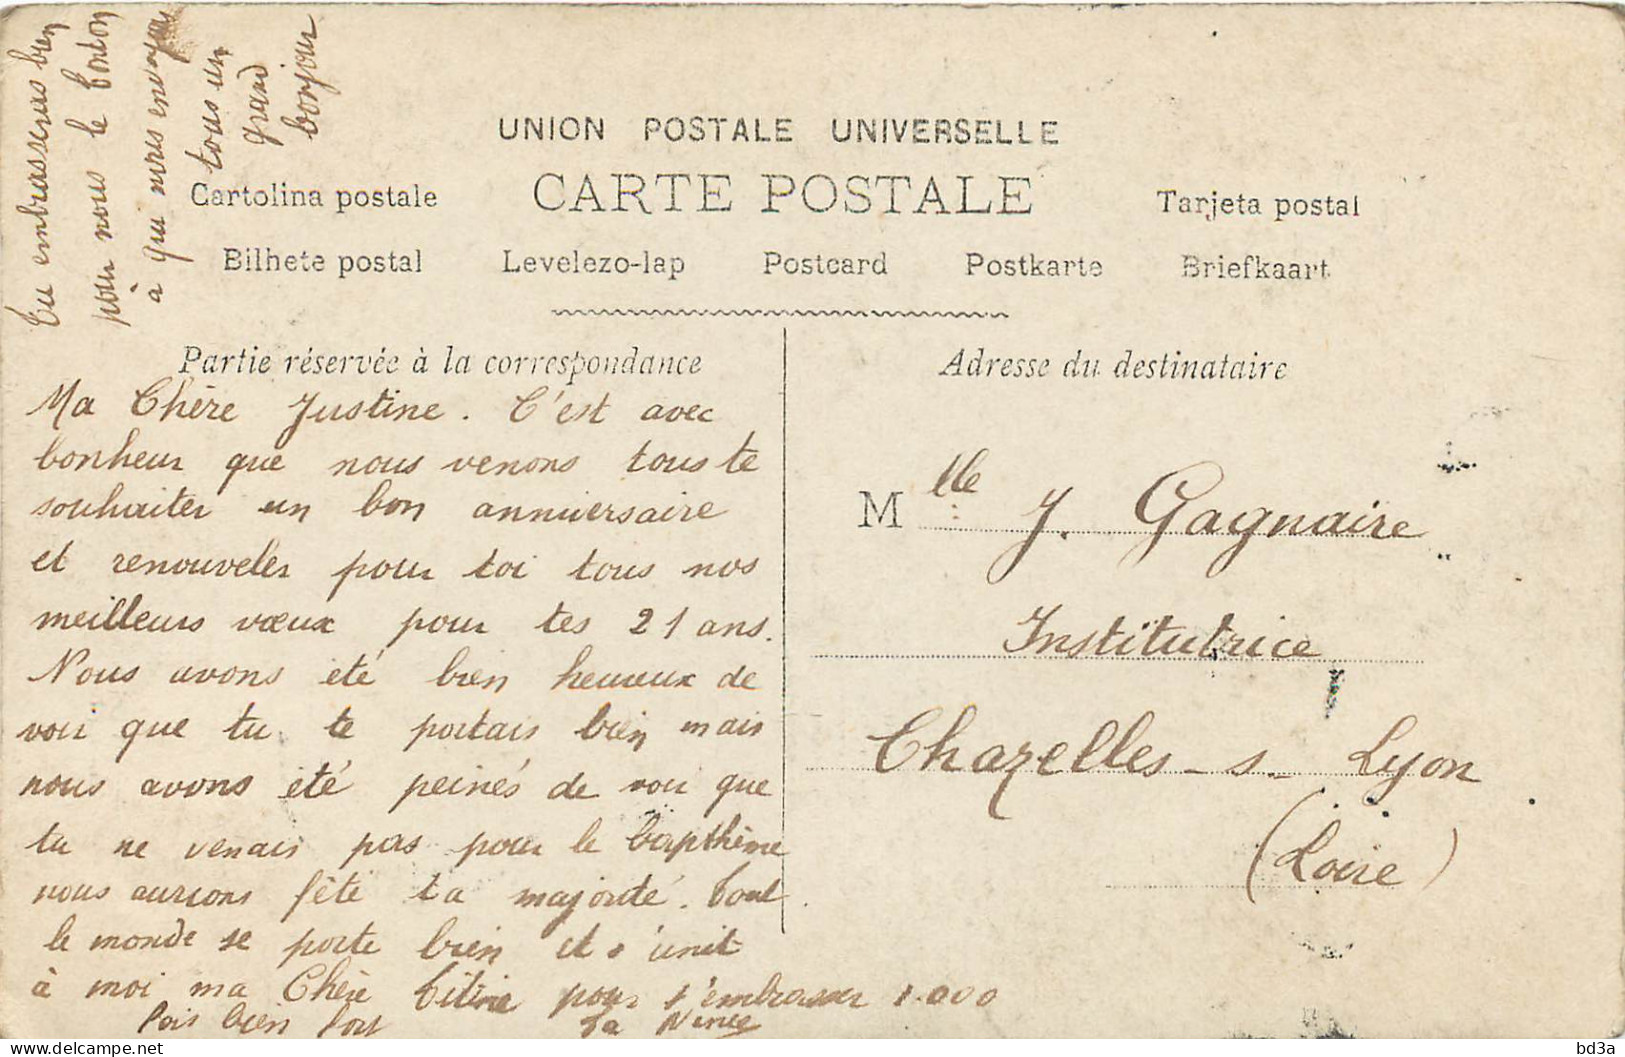 Tu embrasseras bien
pour nous le tonton
à qui nous envoyons
tous un
grand
bonjour
UNION POSTALE UNIVERSELLE
CARTE POSTALE
Cartolina postale
Tarjeta postal
Bilhete postal Levelezo-lap Postcard Postkarte Briefkaart
Partie réservée à la correspondance
Ma Chère Justine. C'est avec
bonheur que nous venons tous te
souhaiter un bon anniversaire
et renouveler pour toi tous nos
meilleurs vœux pour tes 21 ans.
Nous avons été bien heureux de
voir que tu te portais bien mais
nous avons été peinés de voir que
tu ne venais pas pour le bapthême
nous aurions fêté ta majorté. Tout
le monde se porte bien et s'unit
à moi ma Chère Titine pour t'embrasser 1.000
fois bien fort
Ta Ninie
Adresse du destinataire
Mlle J. Gagnaire
Institutrice
Chazelles-s-Lyon
(Loire)
bd3a